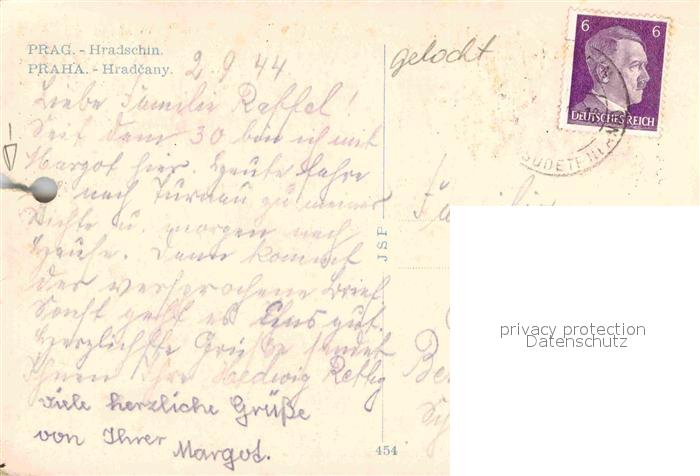 PRAG. - Hradschin.
PRAHA. - Hradčany.
2.9.44
Liebe Familie Raffel!
Seit dem 30 bin ich mit
Margot hier. Heute fahre
nach Turnau zu meiner
Nichte u. morgen nach
Hause. Dann kommt
der versprochene Brief.
Sonst geht es Uns gut.
Herzlichste Grüße sendet
Ihnen Ihre Hedwig Rettig
viele herzliche Grüße
von Ihrer Margot.
gelocht
6 6
DEUTSCHES REICH
Familie
JSP
454
privacy protection
Datenschutz